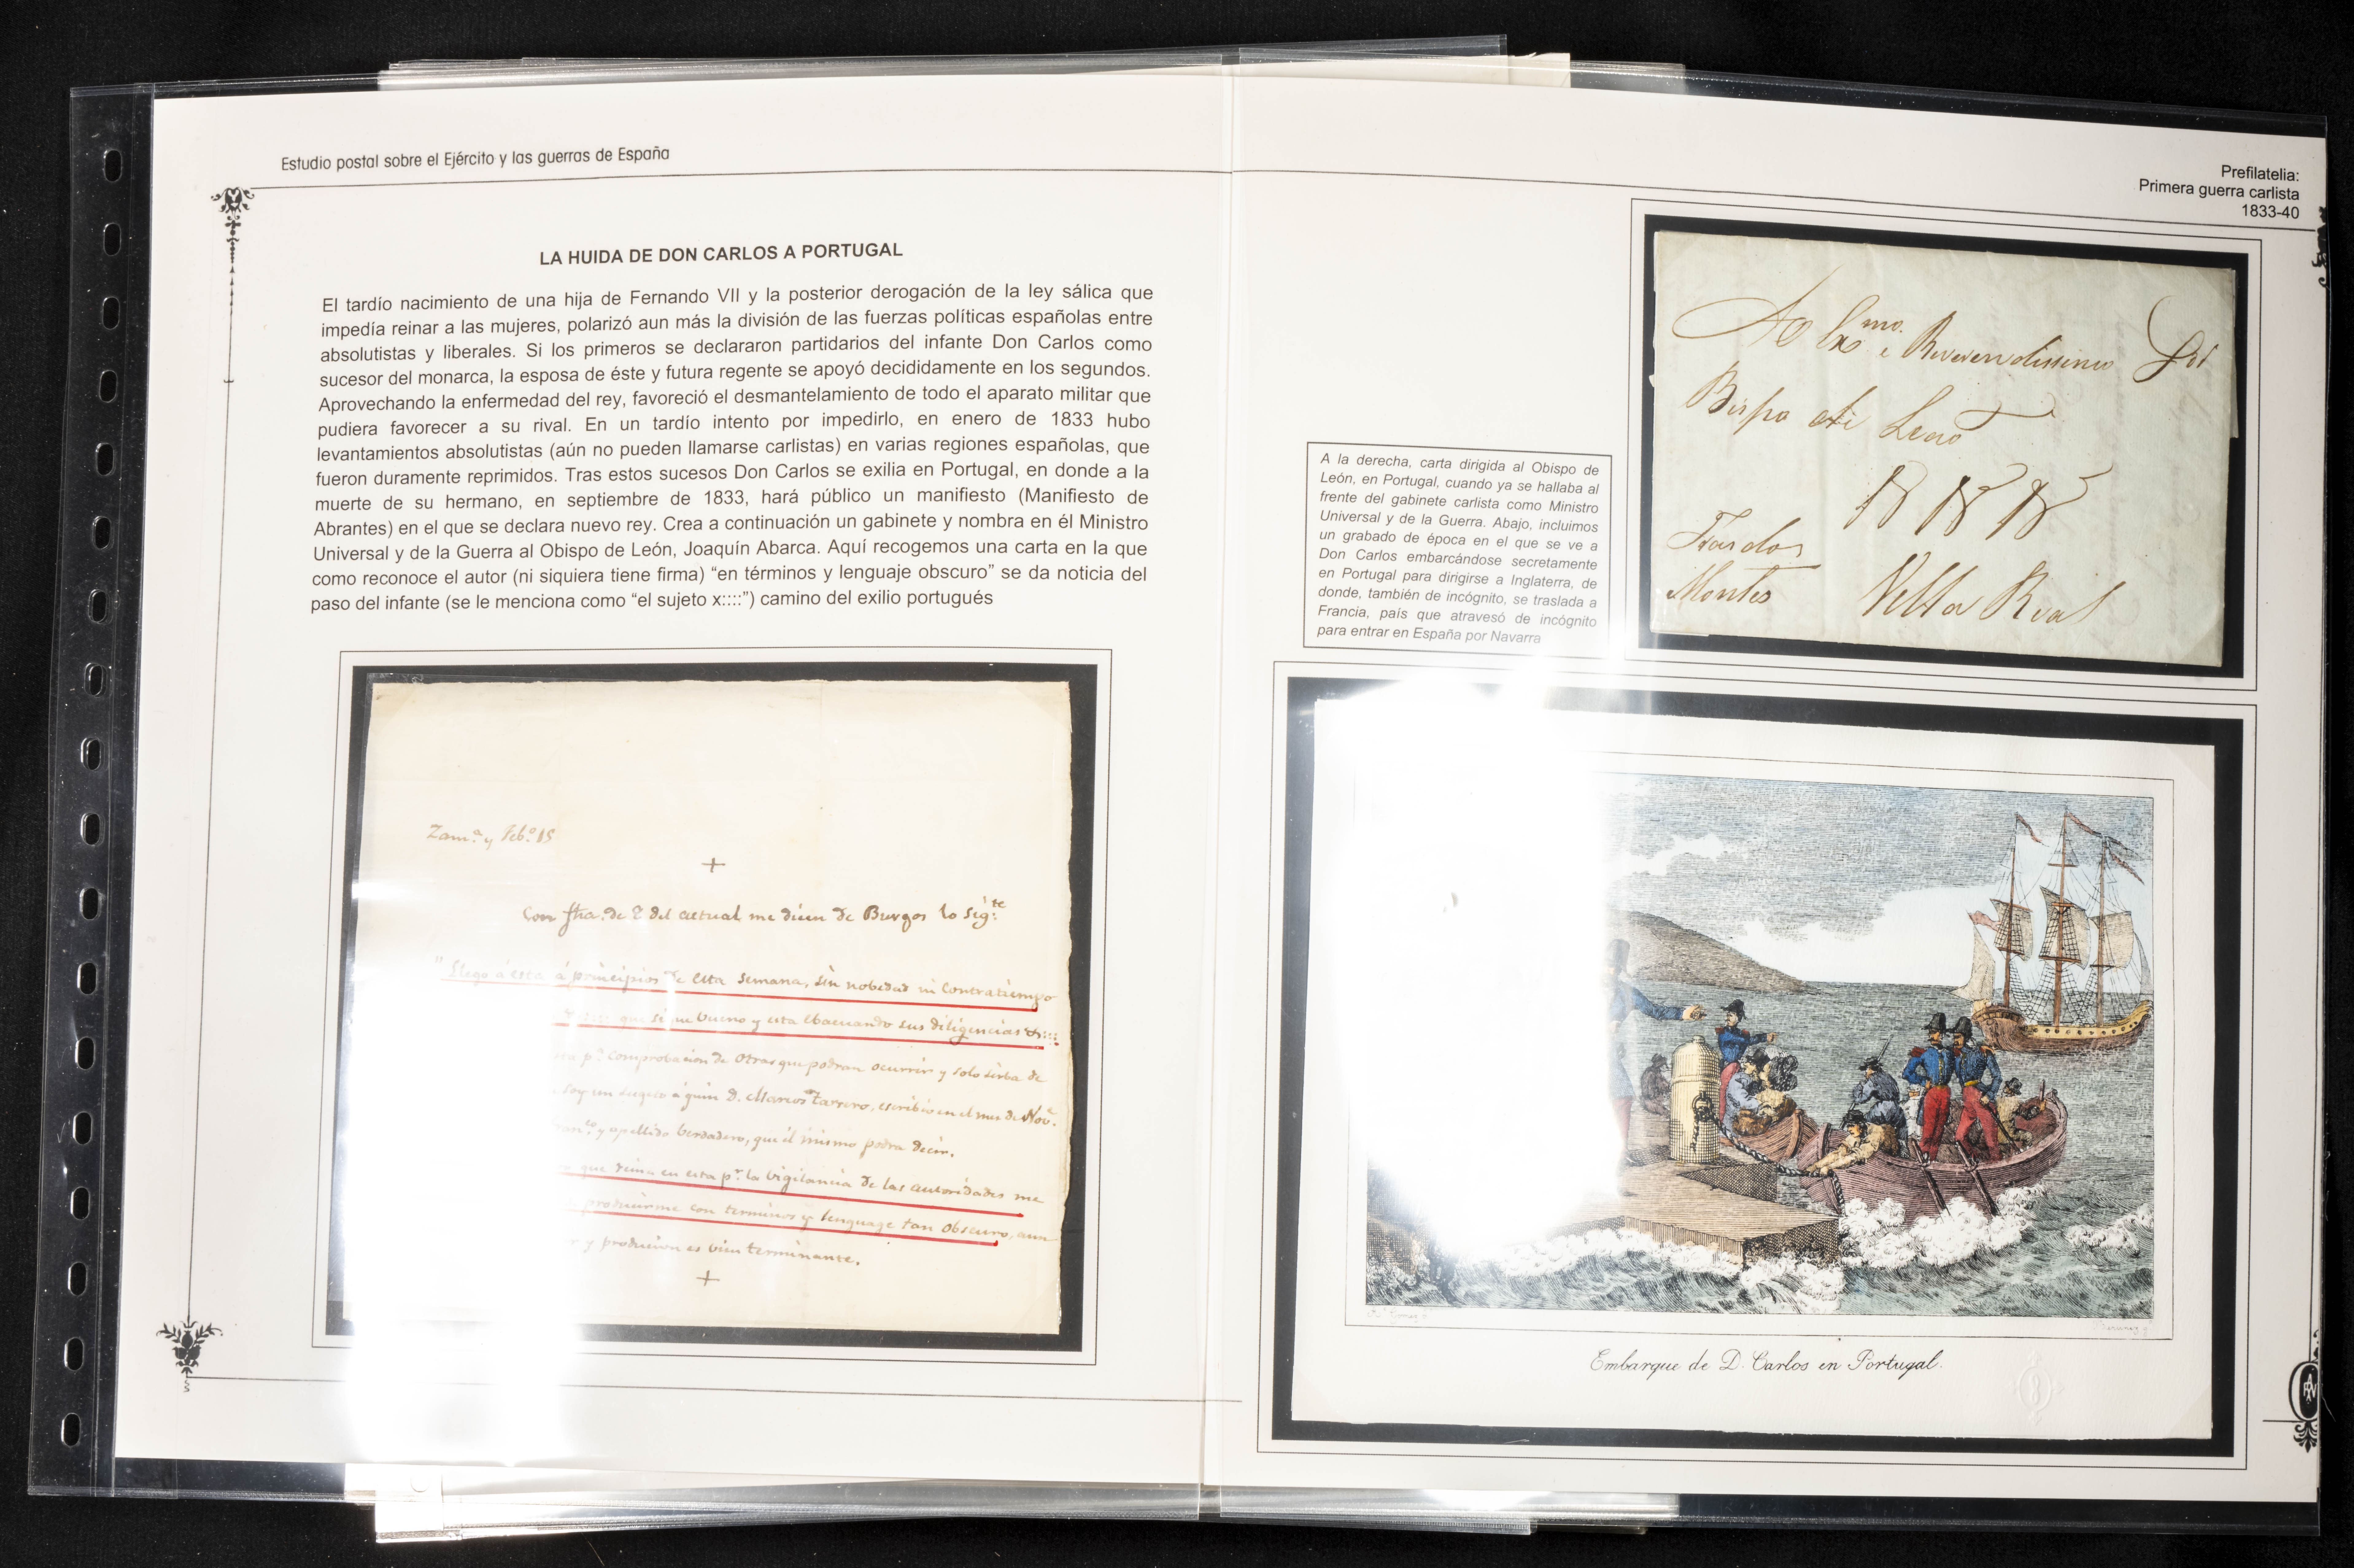 Estudio postal sobre el Ejército y las guerras de España
LA HUIDA DE DON CARLOS A PORTUGAL
El tardío nacimiento de una hija de Fernando VII y la posterior derogación de la ley sálica que
impedía reinar a las mujeres, polarizó aun más la división de las fuerzas políticas españolas entre
absolutistas y liberales. Si los primeros se declararon partidarios del infante Don Carlos como
sucesor del monarca, la esposa de éste y futura regente se apoyó decididamente en los segundos.
Aprovechando la enfermedad del rey, favoreció el desmantelamiento de todo el aparato militar que
pudiera favorecer a su rival. En un tardío intento por impedirlo, en enero de 1833 hubo
levantamientos absolutistas (aún no pueden llamarse carlistas) en varias regiones españolas, que
fueron duramente reprimidos. Tras estos sucesos Don Carlos se exilia en Portugal, en donde a la
muerte de su hermano, en septiembre de 1833, hará público un manifiesto (Manifiesto de
Abrantes) en el que se declara nuevo rey. Crea a continuación un gabinete y nombra en él Ministro
Universal y de la Guerra al Obispo de León, Joaquín Abarca. Aquí recogemos una carta en la que
como reconoce el autor (ni siquiera tiene firma) “en términos y lenguaje obscuro” se da noticia del
paso del infante (se le menciona como “el sujeto x::::”) camino del exilio portugués
Zam.ª y Feb.º 15
+
Con fha. de 8 del actual me dicen de Burgos lo sig.te
"Llego á esta á principios de esta semana, sin nobedad ni contratiempo
que sigue bueno y esta ebacuando sus diligencias
p.ª comprobacion de otras que podran ocurrir y solo sirba de
soy un sugeto á quien D. Marcos Tarrero, escribio en el mes de Nov.e
y apellido berdadero, que él mismo podra decir.
que reina en esta p.r la vigilancia de las autoridades me
producirme con terminos y lenguage tan obscuro, aun
y producion es bien terminante.
+
Prefilatelia:
Primera guerra carlista
1833-40
Ao Exmo. e Reverendissimo Sor
Bispo de Leaõ
Traz dos
Montes Villa Real
A la derecha, carta dirigida al Obispo de
León, en Portugal, cuando ya se hallaba al
frente del gabinete carlista como Ministro
Universal y de la Guerra. Abajo, incluimos
un grabado de época en el que se ve a
Don Carlos embarcándose secretamente
en Portugal para dirigirse a Inglaterra, de
donde, también de incógnito, se traslada a
Francia, país que atravesó de incógnito
para entrar en España por Navarra
Embarque de D. Carlos en Portugal.